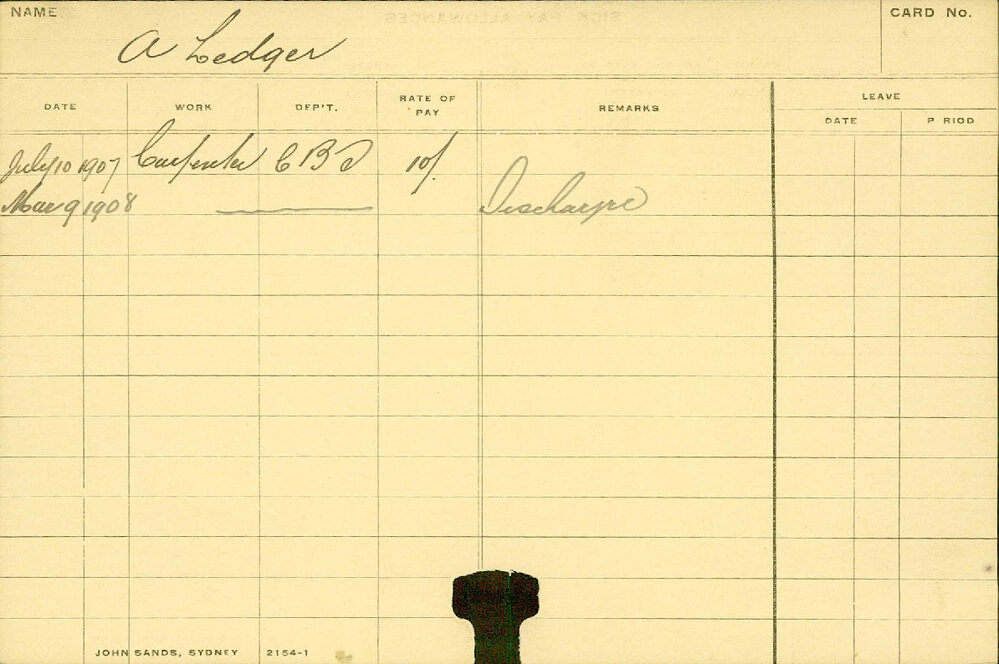 NAME
A Ledger
CARD No.
DATE WORK DEP'T. RATE OF PAY REMARKS LEAVE
DATE P RIOD
July 10 1907 Carpenter 10/
Mar 9 1908 Discharge
JOHN SANDS, SYDNEY 2154-1